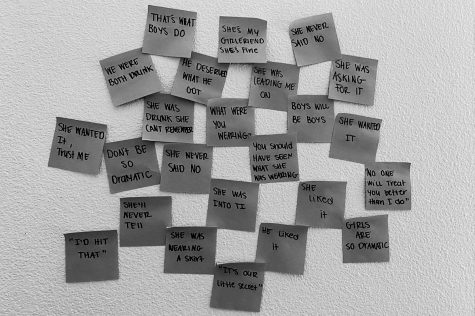 THAT'S WHAT
BOYS DO
SHE'S MY
GIRLFRIEND
SHE'S FINE
SHE NEVER
SAID NO
WE WERE
BOTH DRUNK
HE DESERVED
WHAT HE
GOT
SHE WAS
LEADING ME
ON
SHE WAS
ASKING
FOR IT
SHE WAS
DRUNK SHE
CAN'T REMEMBER
WHAT WERE
YOU
WEARING?
BOYS WILL
BE BOYS
SHE WANTED
IT
SHE WANTED
It,
TRUST ME
DON'T BE
SO
DRAMATIC
SHE NEVER
SAID NO
You should
HAVE SEEN
WHAT SHE
WAS WEARING
NO ONE
will Treat
you better
than I do"
SHE WAS
INTO IT
SHE
liked
it
SHE'll
NEVER
TEll
SHE WAS
WEARING
A SKIRT
HE lIKED
IT
GIRLS
ARE
SO DRAMATIC
"I'D HIT
THAT"
"IT'S OUR
little secret"